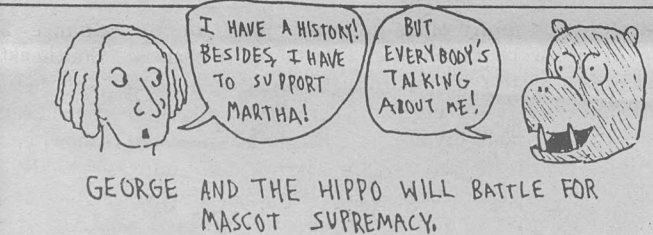 I HAVE A HISTORY!
BESIDES, I HAVE
TO SUPPORT
MARTHA!
BUT
EVERYBODY'S
TALKING
ABOUT ME!
GEORGE AND THE HIPPO WILL BATTLE FOR
MASCOT SUPREMACY.